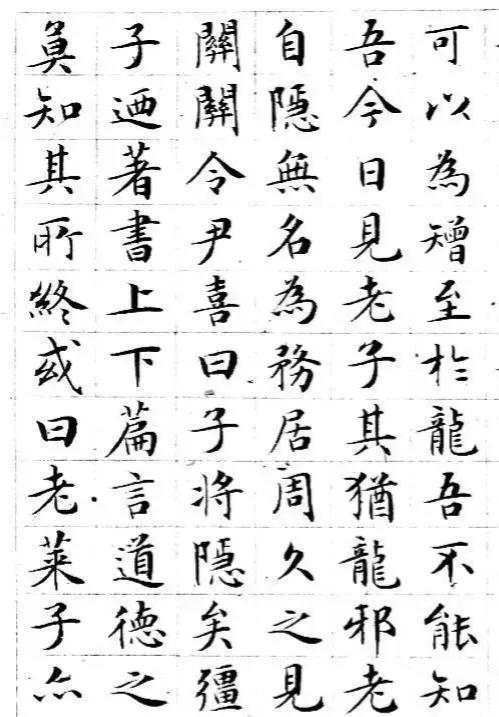 可以為矰至於龍吾不能知
吾今日見老子其猶龍邪老
自隱無名為務居周久之見
關關令尹喜曰子將隱矣彊
子迺著書上下篇言道德之
莫知其所終或曰老萊子亦